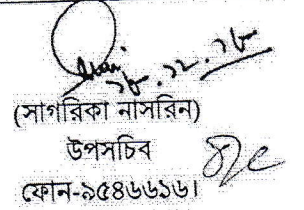 ১৮.১২.১৮
(সাগরিকা নাসরিন)
উপসচিব
ফোন-৯৫৪৬৬১৬।